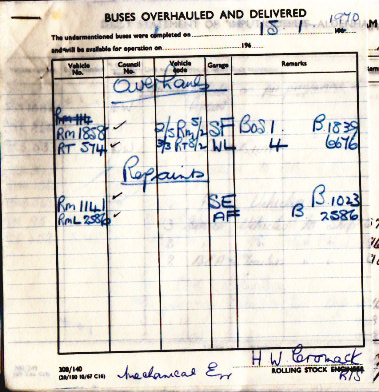 BUSES OVERHAULED AND DELIVERED
1970
The undermentioned buses were completed on 15.1 196
and will be available for operation on 196
Vehicle No. Council No. Vehicle Code Garage Remarks
Overhauls
Rm 114
Rm 1858 ✓ 2/5 Rm 5/2 SF BOS1. B.1839
RT 574 ✓ 3/3 RT8/2 WL 4 6676
Repaints
Rm 1141 ✓ SE B.1023
RmL 2586 ✓ AF B 2586
308/140
Mechanical Eng
H W Cromack
ROLLING STOCK ENGINEER